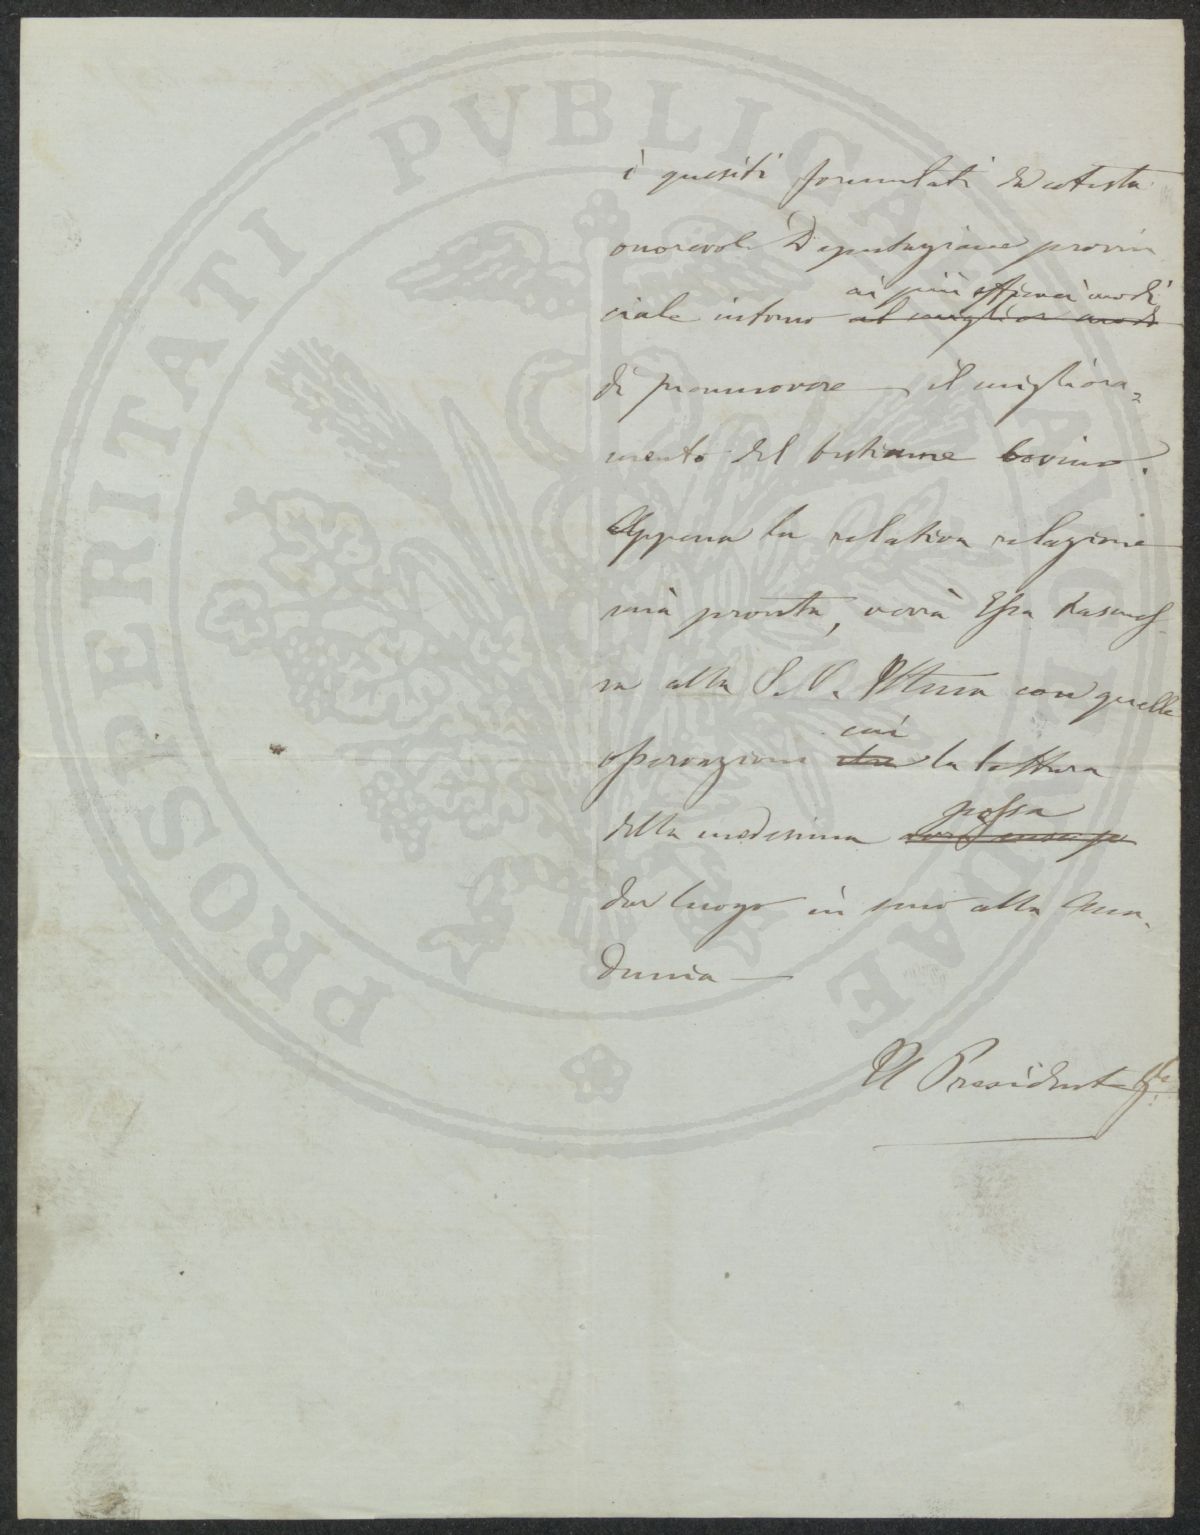 PROSPERITATI PVBLICAE AVGENDAE
i quesiti formulati da cotesta
onorevole Deputazione provin
ai più efficaci modi
ciale intorno al miglior modo
di promuovere il migliora=
mento del bestiame bovino.
Appena la relativa relazione
sarà pronta, verrà Essa
sa alla S. V. Ill.ma con quelle
cui
osservazioni la lettura
possa
della medesima
dar luogo in seno alla Acca-
demia —
Il Presidente